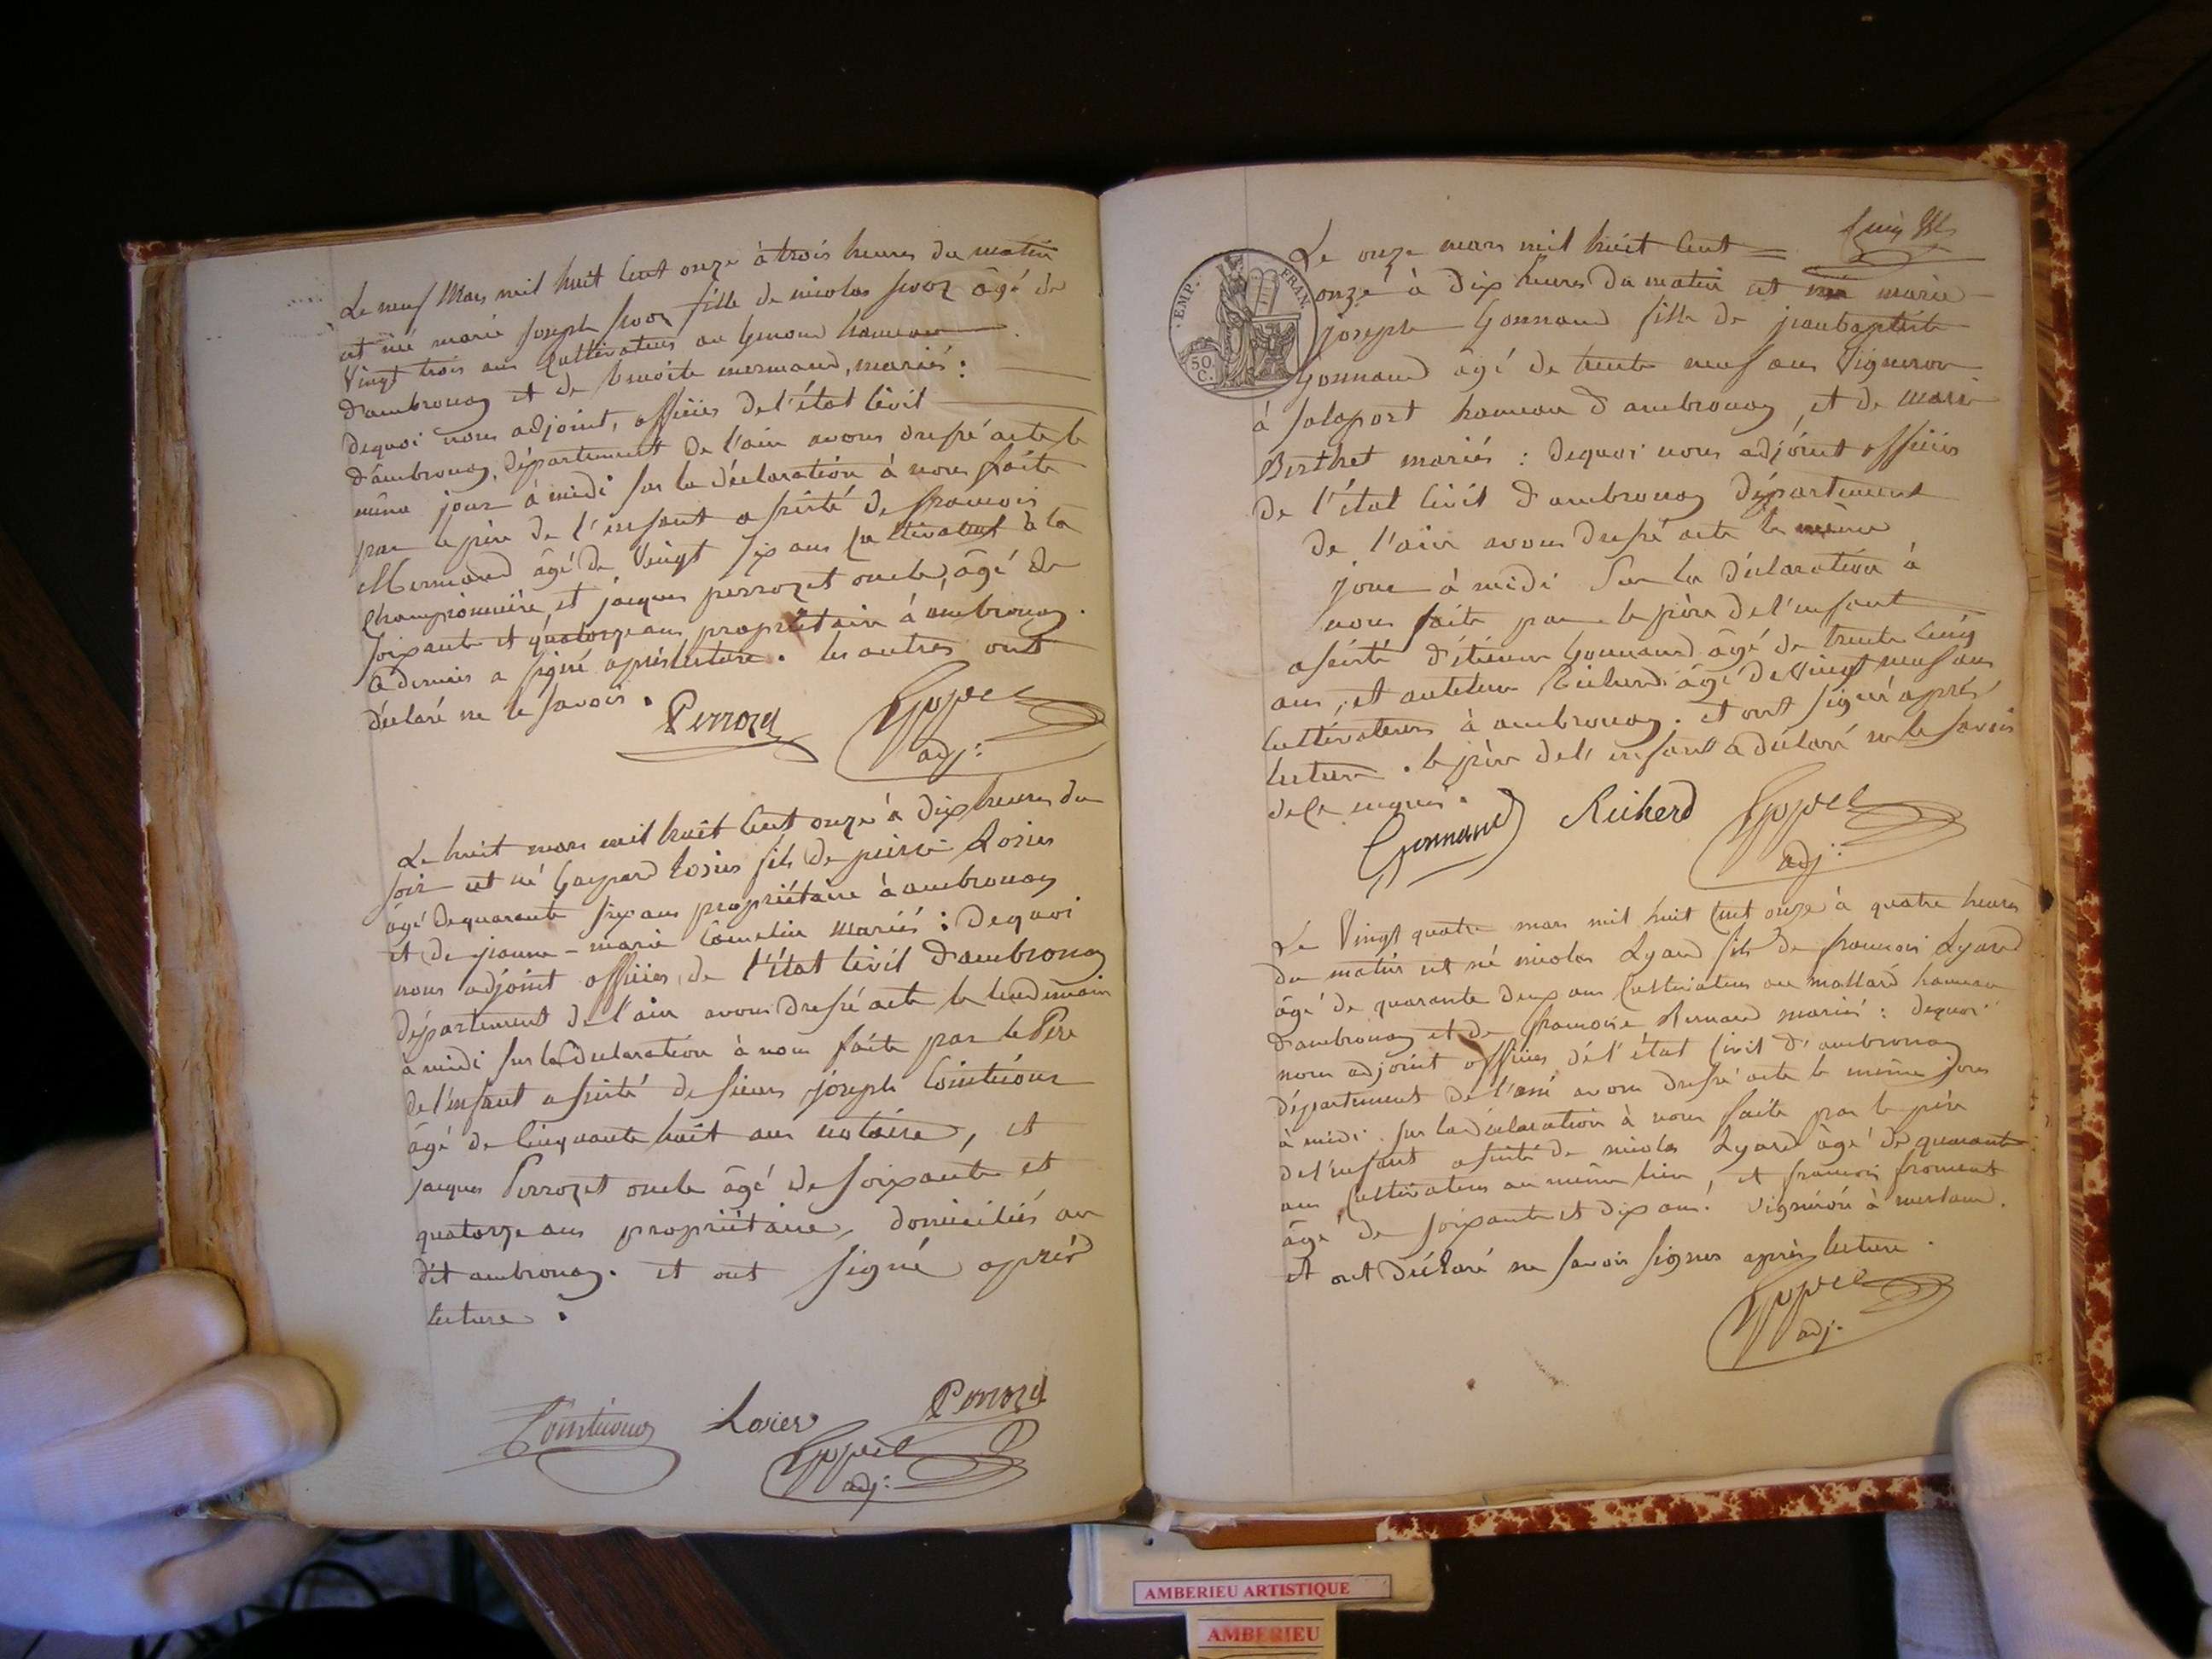 Le neuf Mars mil huit Cent onze à trois heures du matin
est né marie joseph fille de nicolas âgé de
Vingt trois ans Cultivateur au genoud hameau
d'ambronay et de benoite mermand, mariés :
dequoi nous adjoint, officier de l'état Civil
d'ambronay, département de l'ain avons dressé acte le
même jour à midi sur la déclaration à nous faite
par le père de l'enfant assisté de francois
Mermand âgé de Vingt six ans Cultivateur à la
Championnière et jacques perrozet oncle, âgé de
soixante et quatorze ans, propriétaire à ambronay.
Ce dernier a signé après lecture. les autres ont
déclaré ne le savoir.
Perrozet
adj:
Le huit mars mil huit Cent onze à dix heures du
soir est né Gaspard Losier fils de pierre Losier
âgé de quarante six ans propriétaire à ambronay
et de jeanne-marie mariés : dequoi
nous adjoint officier de l'état Civil d'ambronay
département de l'ain avons dressé acte le lendemain
à midi sur la déclaration à nous faite par le Père
de l'enfant assisté de sieur joseph
âgé de Cinquante huit ans notaire, et
jacques Perrozet oncle âgé de soixante et
quatorze ans propriétaire, domiciliés au
dit ambronay. et ont signé après
lecture.
Perrozet
Losier
adj:
EMP. FRAN.
50 C.
Le onze mars mil huit Cent
onze à dix heures du matin est née marie
joseph Gonnand fille de jean baptiste
Gonnand âgé de trente neuf ans Vigneron
à salaport hameau d'ambronay, et de marie
Berthet mariés : dequoi nous adjoint officier
de l'état Civil d'ambronay département
de l'ain avons dressé acte le même
jour à midi sur la déclaration à
nous faite par le père de l'enfant
assisté d'étienne Gonnand âgé de trente Cinq
ans, et antelme Richerd âgé de Vingt neuf ans
Cultivateurs à ambronay. et ont signé après
lecture. le père de l'enfant a déclaré ne le savoir
de ce enquis.
Gonnand
Richerd
adj:
Le Vingt quatre mars mil huit Cent onze à quatre heures
du matin est né nicolas Lyard fils de francois Lyard
âgé de quarante deux ans Cultivateur au mollard hameau
d'ambronay et de francoise mariés : dequoi
nous adjoint officier de l'état Civil d'ambronay
département de l'ain avons dressé acte le même jour
à midi sur la déclaration à nous faite par le père
de l'enfant assisté de nicolas Lyard âgé de quarante
ans Cultivateur au même lieu, et francois froment
âgé de soixante et dix ans. Vigneron à
et ont déclaré ne savoir signer après lecture.
adj.
AMBERIEU ARTISTIQUE
AMBERIEU